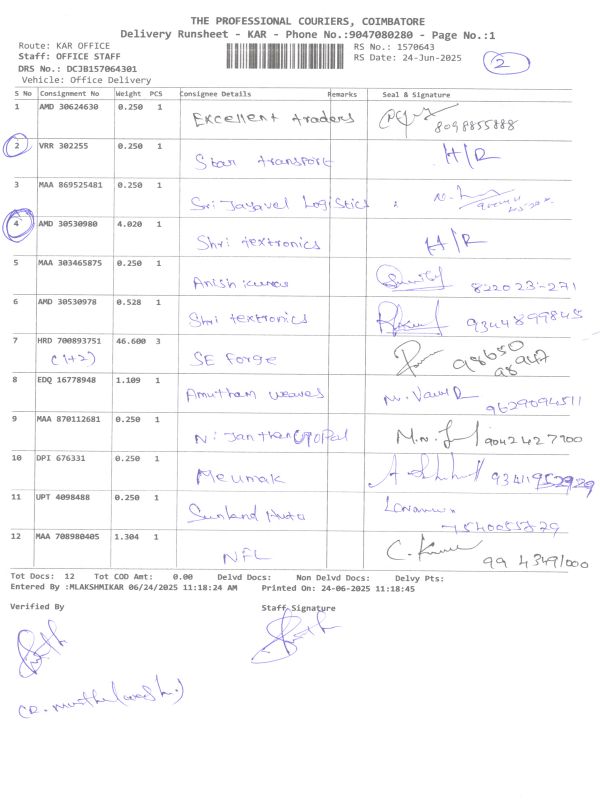 THE PROFESSIONAL COURIERS, COIMBATORE
Delivery Runsheet - KAR - Phone No.:9047080280 - Page No.:1
Route: KAR OFFICE RS No.: 1570643
Staff: OFFICE STAFF RS Date: 24-Jun-2025 2
DRS No.: DCJB157064301
Vehicle: Office Delivery
S No Consignment No Weight PCS Consignee Details Remarks Seal & Signature
1 AMD 30624630 0.250 1 Excellent traders
8098855888
2 VRR 302255 0.250 1 Star transport H/R
3 MAA 869525481 0.250 1 Sri Jayavel Logistics
4 AMD 30530980 4.020 1 Shri textronics H/R
5 MAA 303465875 0.250 1 Anish kumar
6 AMD 30530978 0.528 1 Shri textronics 9344899845
7 HRD 700893751 46.600 3 SE Forge 98650
(1+2)
8 EDQ 16778948 1.109 1 Amutham weaves
9629094511
9 MAA 870112681 0.250 1 9042427900
10 DPI 676331 0.250 1 Meumak
11 UPT 4098488 0.250 1 Sunland Auto
12 MAA 708980405 1.304 1 NFL
Tot Docs: 12 Tot COD Amt: 0.00 Delvd Docs: Non Delvd Docs: Delvy Pts:
Entered By :MLAKSHMIKAR 06/24/2025 11:18:24 AM Printed On: 24-06-2025 11:18:45
Verified By Staff Signature